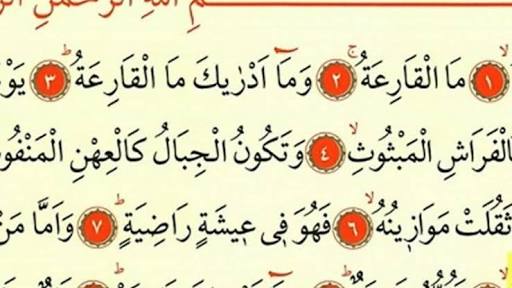 مِ اللّٰهِ الرَّحْمٰنِ
١ مَا الْقَارِعَةُ ٢ وَمَٓا اَدْرٰيكَ مَا الْقَارِعَةُ ٣
كَالْفَرَاشِ الْمَبْثُوثِ ٤ وَتَكُونُ الْجِبَالُ كَالْعِهْنِ الْمَنْفُو
ثَقُلَتْ مَوَازِينُهُ ٦ فَهُوَ فِي عِيشَةٍ رَاضِيَةٍ ٧ وَاَمَّا مَنْ